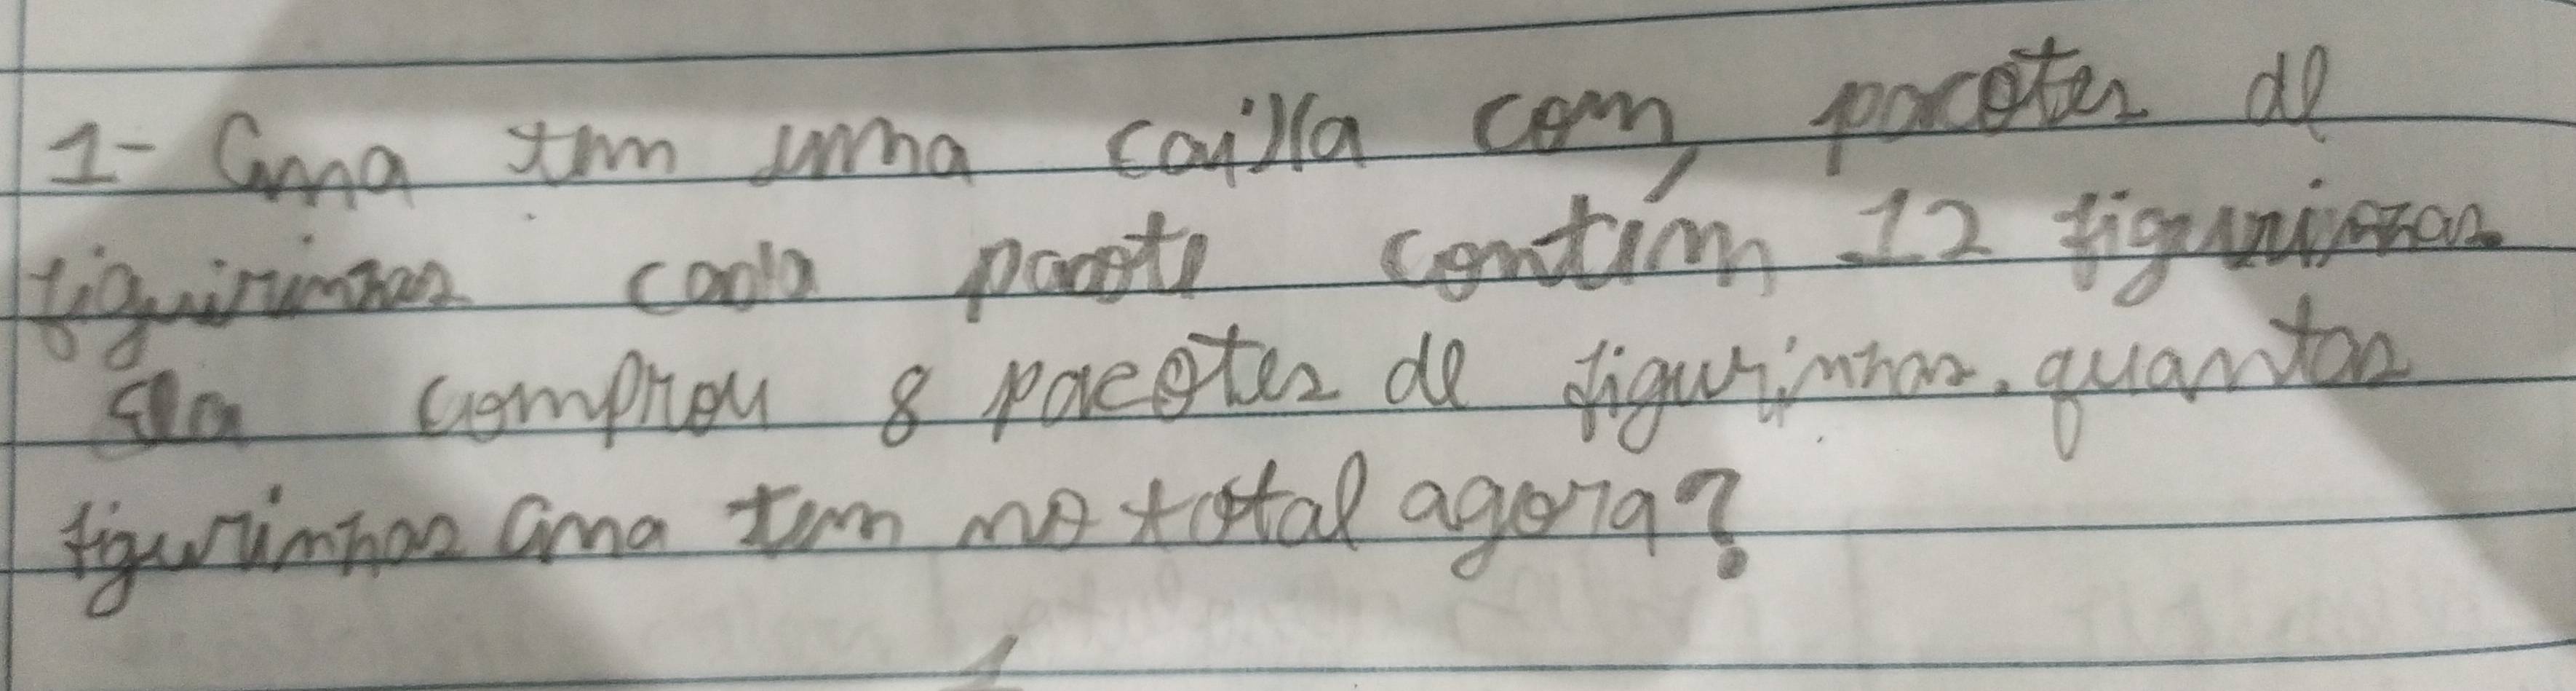 1- Ana tem uma caixa com pacotes de
figuirinhas cada pacote contém 12 figurinhas.
Ela comprou 8 pacotes de figurinhas. quantas
figurinhas Ana tem no total agora?